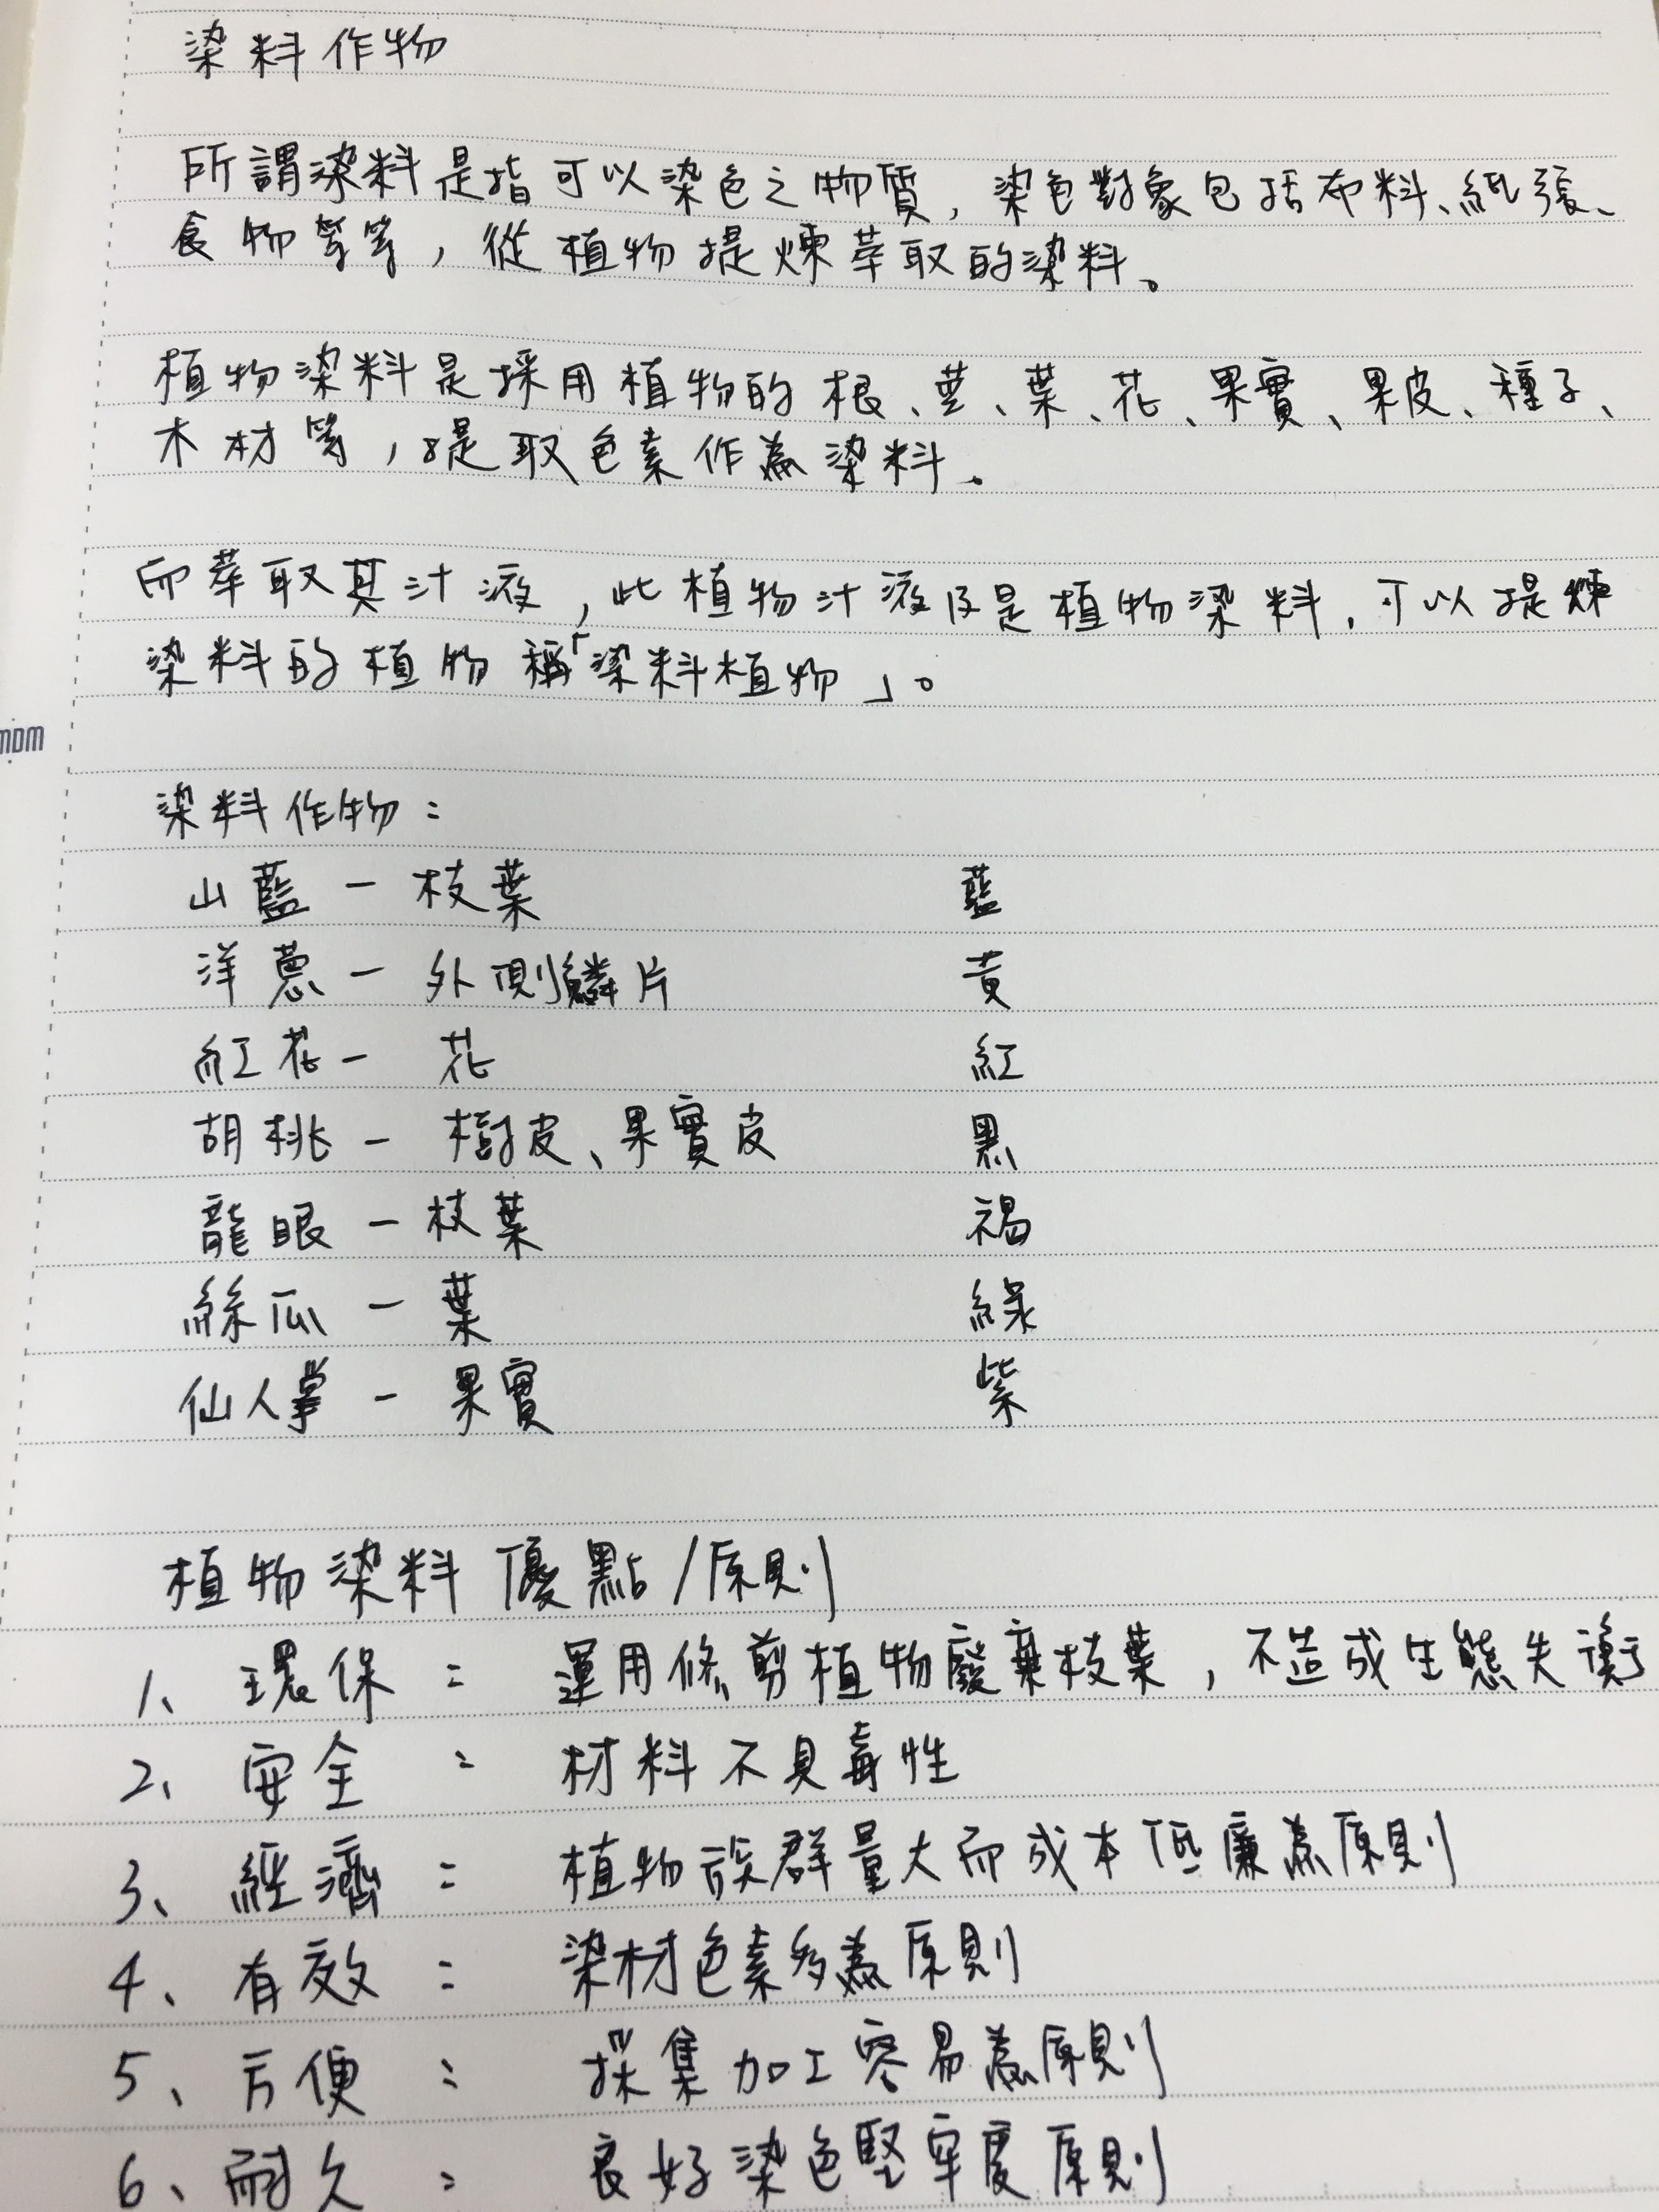 染料作物
所謂染料是指可以染色之物質,染色對象包括布料、紙張、
食物等等,從植物提煉萃取的染料。
植物染料是採用植物的根、莖、葉、花、果實、果皮、種子、
木材等,提取色素作為染料。
而萃取其汁液,此植物汁液及是植物染料,可以提煉
染料的植物稱「染料植物」。
mDm
染料作物:
山藍-枝葉 藍
洋蔥-外側鱗片 黃
紅花-花 紅
胡桃-樹皮、果實皮 黑
龍眼-枝葉 褐
絲瓜-葉 綠
仙人掌-果實 紫
植物染料優點/原則
1、環保:運用修剪植物廢棄枝葉,不造成生態失衡
2、安全:材料不具毒性
3、經濟:植物族群量大而成本低廉為原則
4、有效:染材色素多為原則
5、方便:採集加工容易為原則
6、耐久:良好染色堅牢度原則